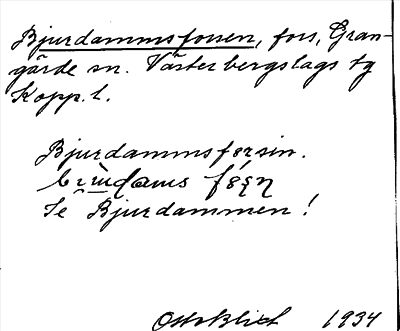 Bjurdammsforsen, fors, Gran-
gärde sn. Västerbergslags tg
Kopp. l.
Bjurdammsførsin.
Se Bjurdammen!
Otto Blixt 1934